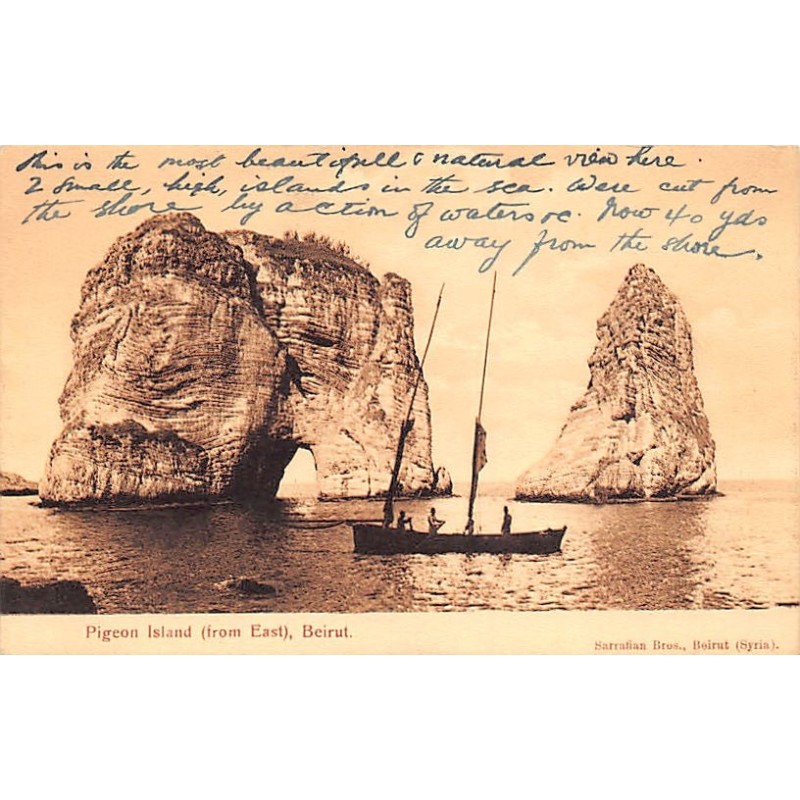 This is the most beautifull & natural view here.
2 small, high, islands in the sea. Were cut from
the shore by action of waters &c. Now 40 yds
away from the shore.
Pigeon Island (from East), Beirut.
Sarrafian Bros., Beirut (Syria).